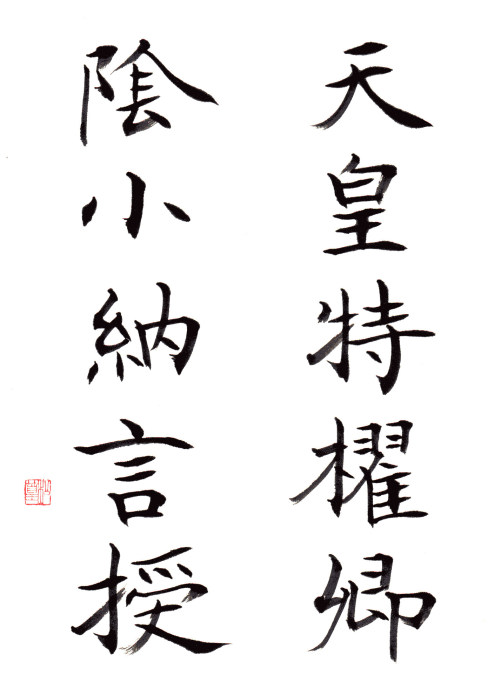 天皇特櫂卿
陰小納言授